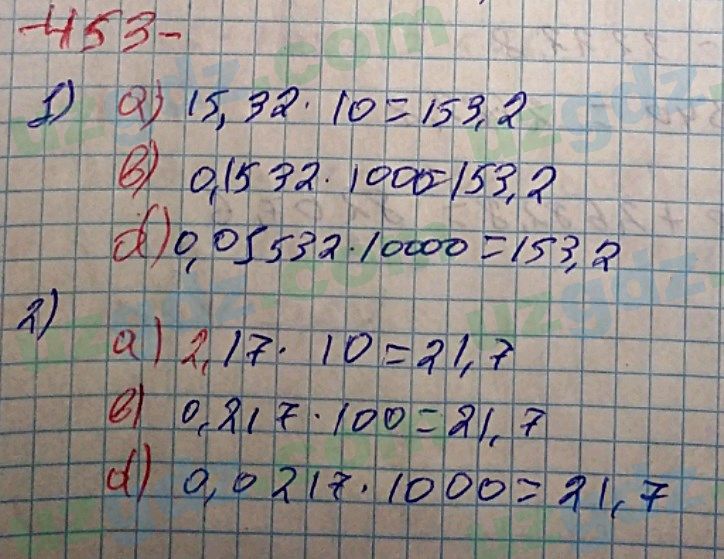 453-
1) a) 15,32 · 10 = 153,2
b) 0,1532 · 1000 = 153,2
d) 0,05532 · 10000 = 153,2
2)
a) 2,17 · 10 = 21,7
b) 0,217 · 100 = 21,7
d) 0,0217 · 1000 = 21,7